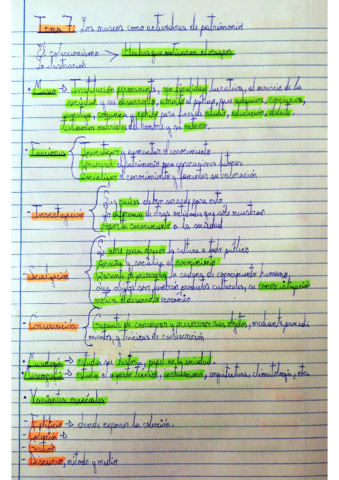 Tema 7 Los museos como activadores de patrimonio
El coleccionismo > Hechos que motivaron el origen
La ilustración
• Museo → Institución permanente, sin finalidad lucrativa, al servicio de la
sociedad y su desarrollo, abierta al público, que adquiere, conserva,
investiga, comunica y exhibe para fines de estudio, educación, deleite,
testimonios materiales del hombre y su entorno.
• Funciones Investigar y aumentar el conocimiento
Conservar el patrimonio para generaciones futuras
Socializar el conocimiento y fomentar su valoración
- Investigación
Lo diferencia de otras entidades que sólo muestran
Aporta conocimiento a la sociedad
- Socialización Se abre para ofrecer la cultura a todo público
y socializa el conocimiento
la cadena de conocimiento humano,
sus objetos son también productos culturales, su comercialización
motiva el desarrollo económico
- Conservación Encargado de conservar y sus objetos, mediante procedi
mientos y técnicas de conservación
• Museología → estudia su historia, papel en la sociedad.
• Museografía → estudia el aspecto técnico, instalaciones, arquitectura, climatología, etc.
• Variantes esenciales
- Edificio → donde exponer la colección.
- Colección →
- Gestión
- Discurso, método y medio